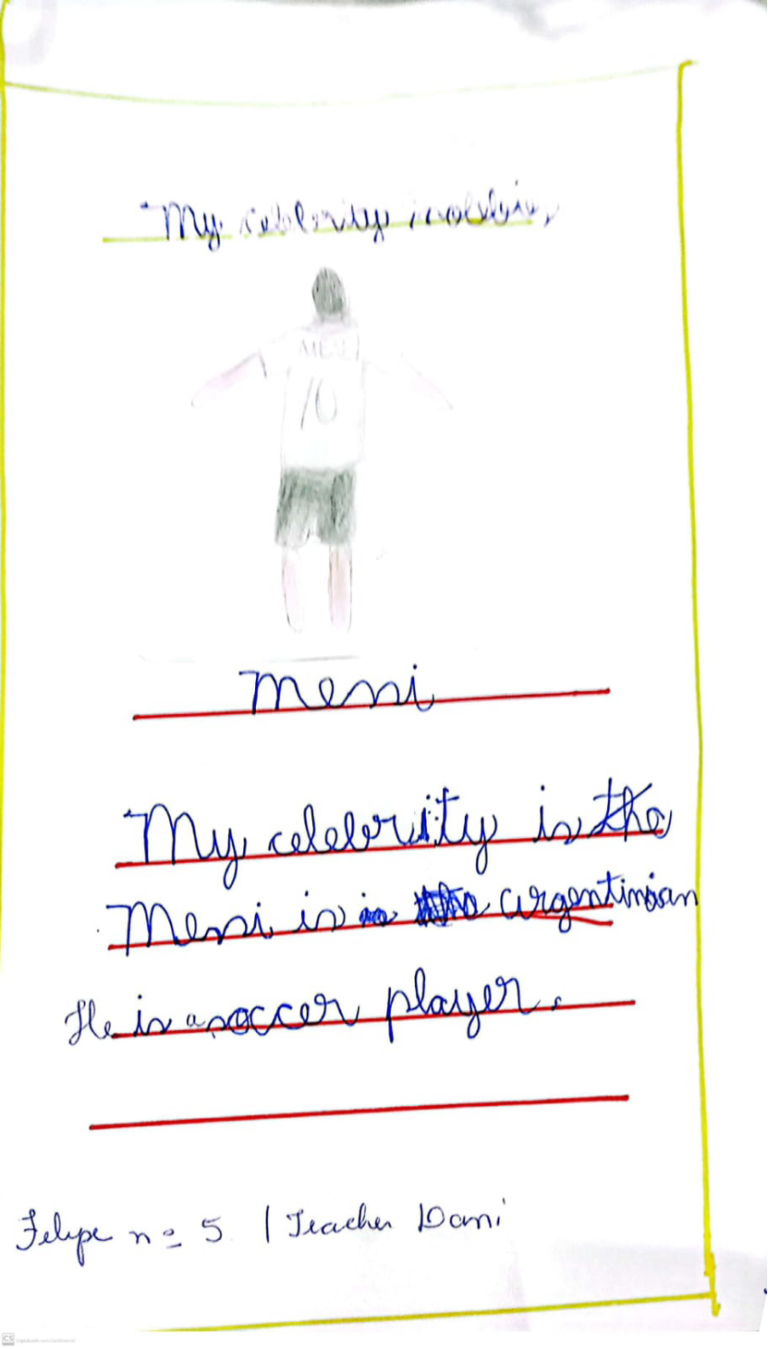 My celebrity
10
Messi
My celebrity is the
Messi is argentinian
He is a soccer player.
Felipe nº 5 | Teacher Dani
CS